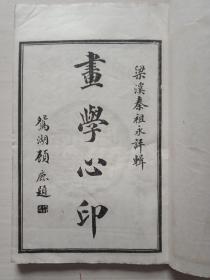 梁溪秦祖永評輯
畫學心印
鴛湖顧
題